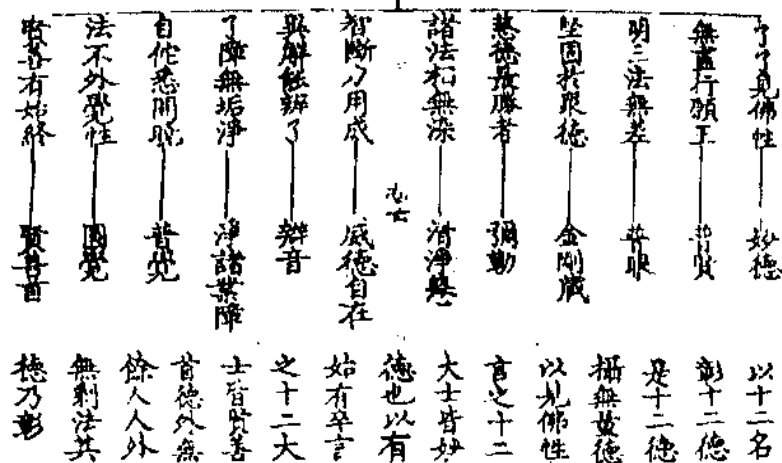 了了見佛性 妙德
無盡行願王 普賢
明三法無差 普眼
堅固於眾德 金剛藏
慈德最勝者 彌勒
諸法相無染 清淨慧
智斷乃用成 威德自在
無解能辨了 辨音
了障無垢淨 淨諸業障
自佗悉開明 普覺
法不外覺性 圓覺
賢善有始終 賢善首
以十二名
彰十二德
是十二德
攝無量德
以見佛性
言之十二
大士皆妙
德也以有
始有卒言
之十二大
士皆賢善
首德外無
餘人人外
無剩法其
德乃彰